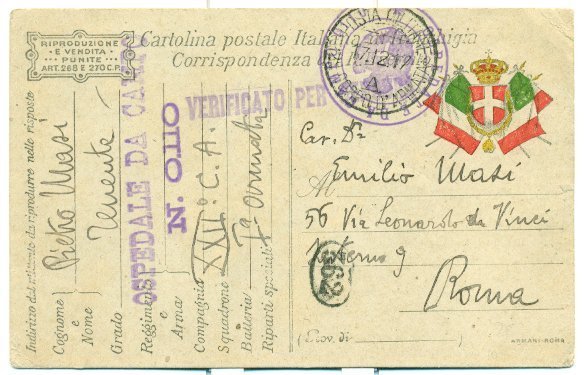 RIPRODUZIONE
E VENDITA
PUNITE
ART. 268 E 270 C.P.
Cartolina postale Italiana in franchigia
Corrispondenza del R. Esercito
VERIFICATO PER
POSTA MILITARE
12 17
A
Car. Dr
Emilio Masi
56 Via Leonardo da Vinci
interno 9
Roma
362
(Prov. di
ARMANI-ROMA
Indirizzo del mittente da riprodurre nelle risposte
Cognome e Nome Pietro Masi
Grado Tenente
OSPEDALE DA CAMPO
Reggimento e Arma
N. OTTO
Compagnia XXII° C. A.
Squadrone
Batteria 7ª Armata
Riparti speciali